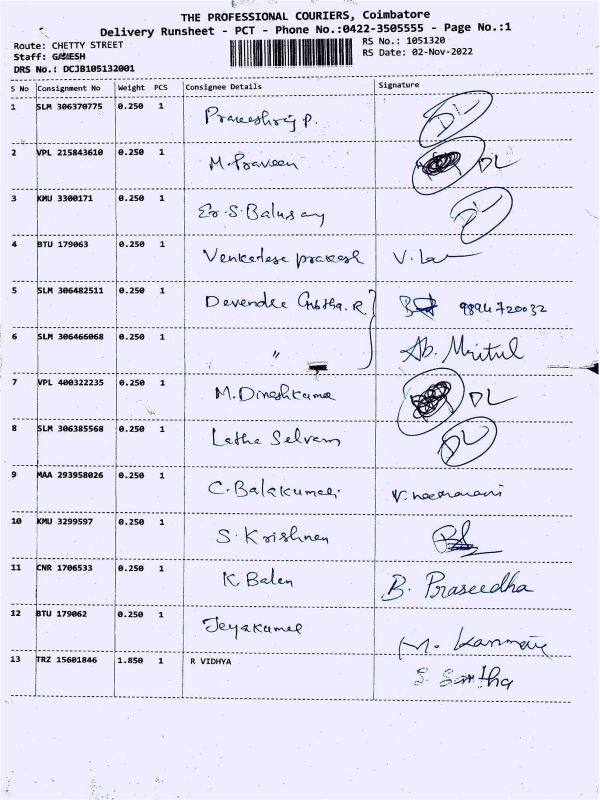 THE PROFESSIONAL COURIERS, Coimbatore
Delivery Runsheet - PCT - Phone No.:0422-3505555 - Page No.:1
Route: CHETTY STREET
RS No.: 1051320
Staff: GANESH
RS Date: 02-Nov-2022
DRS No.: DCJB105132001
S No Consignment No Weight PCS Consignee Details Signature
1 SLM 306370775 0.250 1 DL
2 VPL 215843610 0.250 1 M. Praveen DL
3 KMU 3300171 0.250 1 Er. S. Balusamy DL
4 BTU 179063 0.250 1 Venkatesa prakash
5 SLM 306482511 0.250 1 Devendra R. 9894720032
6 SLM 306466068 0.250 1 " Ab. Mritul
7 VPL 400322235 0.250 1 M. Dineshkumar DL
8 SLM 306385568 0.250 1 Latha Selvam DL
9 MAA 293958026 0.250 1 C. Balakumari
10 KMU 3299597 0.250 1 S. Krishnan
11 CNR 1706533 0.250 1 K. Balan B. Praseedha
12 BTU 179062 0.250 1 Jeyakumar
13 TRZ 15601846 1.850 1 R VIDHYA